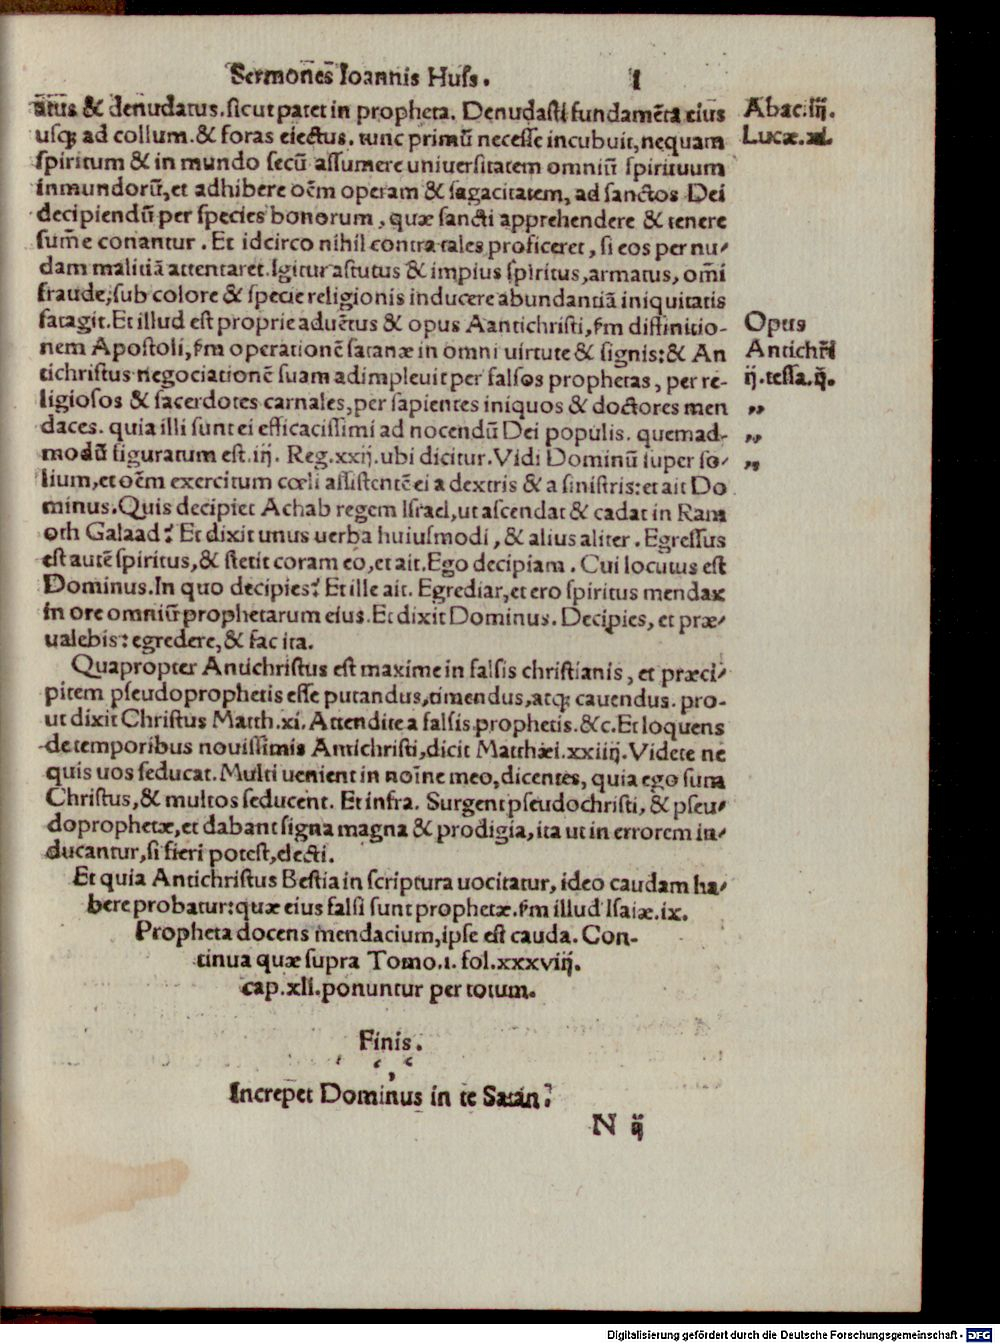 Sermones Ioannis Huss. I
atus & denudatus.sicut patet in propheta. Denudasti fundamēta eius
Abac.iij.
usq; ad collum.& foras eiectus. tunc primū necesse incubuit,nequam
Lucæ.xi.
spiritum & in mundo secū assumere universitatem omniū spirituum
inmundorū,et adhibere oēm operam & sagacitatem, ad sanctos Dei
decipiendū per species bonorum, quæ sancti apprehendere & tenere
sum̄e conantur. Et idcirco nihil contra tales proficeret, si eos per nu-
dam malitiā attentaret.Igitur astutus & impius spiritus,armatus, om̄i
fraude,sub colore & specie religionis inducere abundantiā iniquitatis
satagit.Et illud est proprie aduētus & opus Aantichristi,ſm diffinitio-
Opus
nem Apostoli,ſm operationē satanæ in omni uirtute & signis:& An
Antichri
tichristus negociationē suam adimpleuit per falsos prophetas, per re-
ij.tessa.ij.
ligiosos & sacerdotes carnales,per sapientes iniquos & doctores men
„
daces. quia illi sunt ei efficacissimi ad nocendū Dei populis. quemad-
„
modū figuratum est.iij. Reg.xxij.ubi dicitur.Vidi Dominū super so-
„
lium,et oēm exercitum cœli assistentē ei a dextris & a sinistris:et ait Do
minus.Quis decipiet Achab regem Israel,ut ascendat & cadat in Ram
oth Galaad? Et dixit unus uerba huiusmodi, & alius aliter. Egressus
est autē spiritus,& stetit coram eo,et ait.Ego decipiam. Cui locutus est
Dominus.In quo decipies? Et ille ait. Egrediar,et ero spiritus mendax
in ore omniū prophetarum eius.Et dixit Dominus. Decipies, et præ-
ualebis: egredere,& fac ita.
Quapropter Antichristus est maxime in falsis christianis, et præci-
pitem pseudoprophetis esse putandus,timendus,atq; cauendus. pro-
ut dixit Christus Matth.xi. Attendite a falsis prophetis. &c.Et loquens
de temporibus nouissimis Antichristi,dicit Matthæi.xxiiij.Videte ne
quis uos seducat.Multi uenient in noīne meo,dicentes, quia ego sum
Christus,& multos seducent. Et infra. Surgent pseudochristi, & pseu-
doprophetæ,et dabant signa magna & prodigia,ita ut in errorem in-
ducantur,si fieri potest,electi.
Et quia Antichristus Bestia in scriptura uocitatur, ideo caudam ha-
bere probatur:quæ eius falsi sunt prophetæ.ſm illud Isaiæ.ix.
Propheta docens mendacium,ipse est cauda. Con-
tinua quæ supra Tomo.1. fol.xxxviij.
cap.xli.ponuntur per totum.
Finis.
Increpet Dominus in te Satan?
N ij
Digitalisierung gefördert durch die Deutsche Forschungsgemeinschaft - DFG